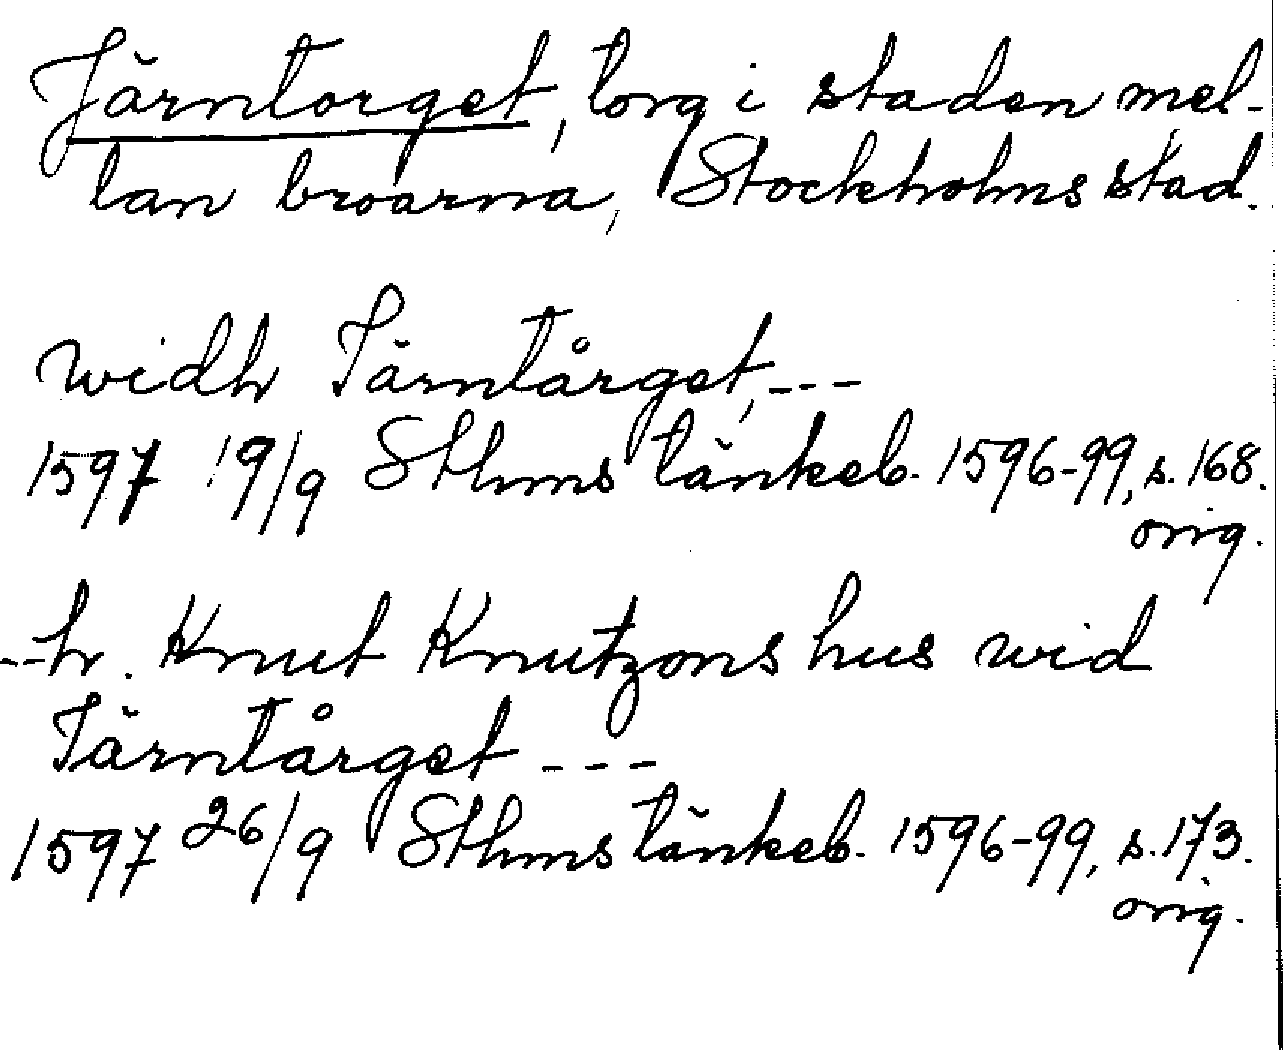 Järntorget, torg i staden mel-
lan broarna, Stockholms stad.
widh Järntårget, ---
1597 19/9 Sthms tänkeb. 1596-99, s. 168.
orig.
--hr. Knut Knutzons hus wid
Järntårget ---
1597 26/9 Sthms tänkeb. 1596-99, s. 173.
orig.